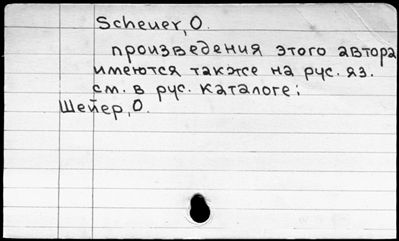 Scheuer, O.
произведения этого автора
имеются также на рус. яз.
см. в рус. каталоге:
Шейер, О.